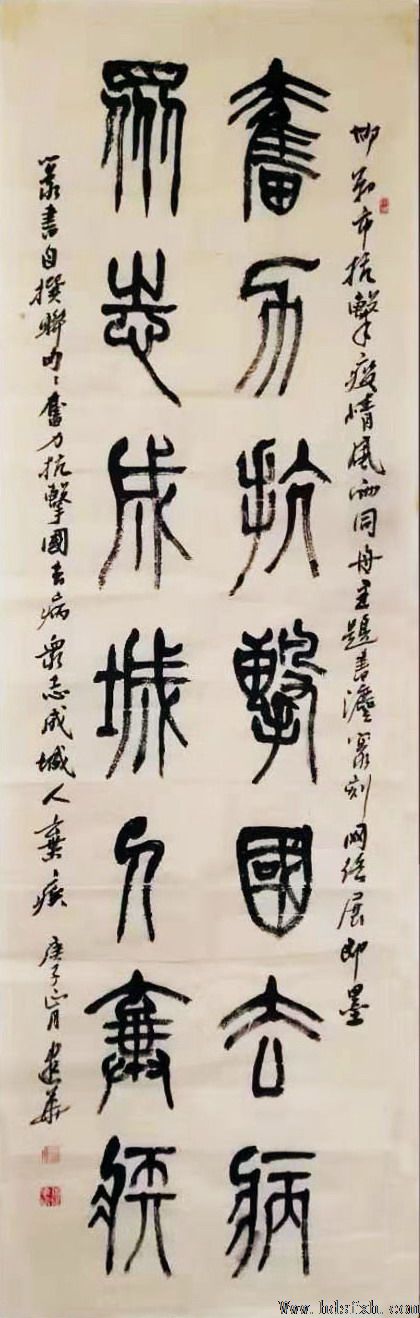 邯鄲市抗擊疫情風雨同舟主題書灋篆刻網絡展即墨
奮力抗擊國去病
眾志成城人棄疾
篆書自撰聯句：奮力抗擊國去病眾志成城人棄疾 庚子正月 建華
Www.hdsfxh.com